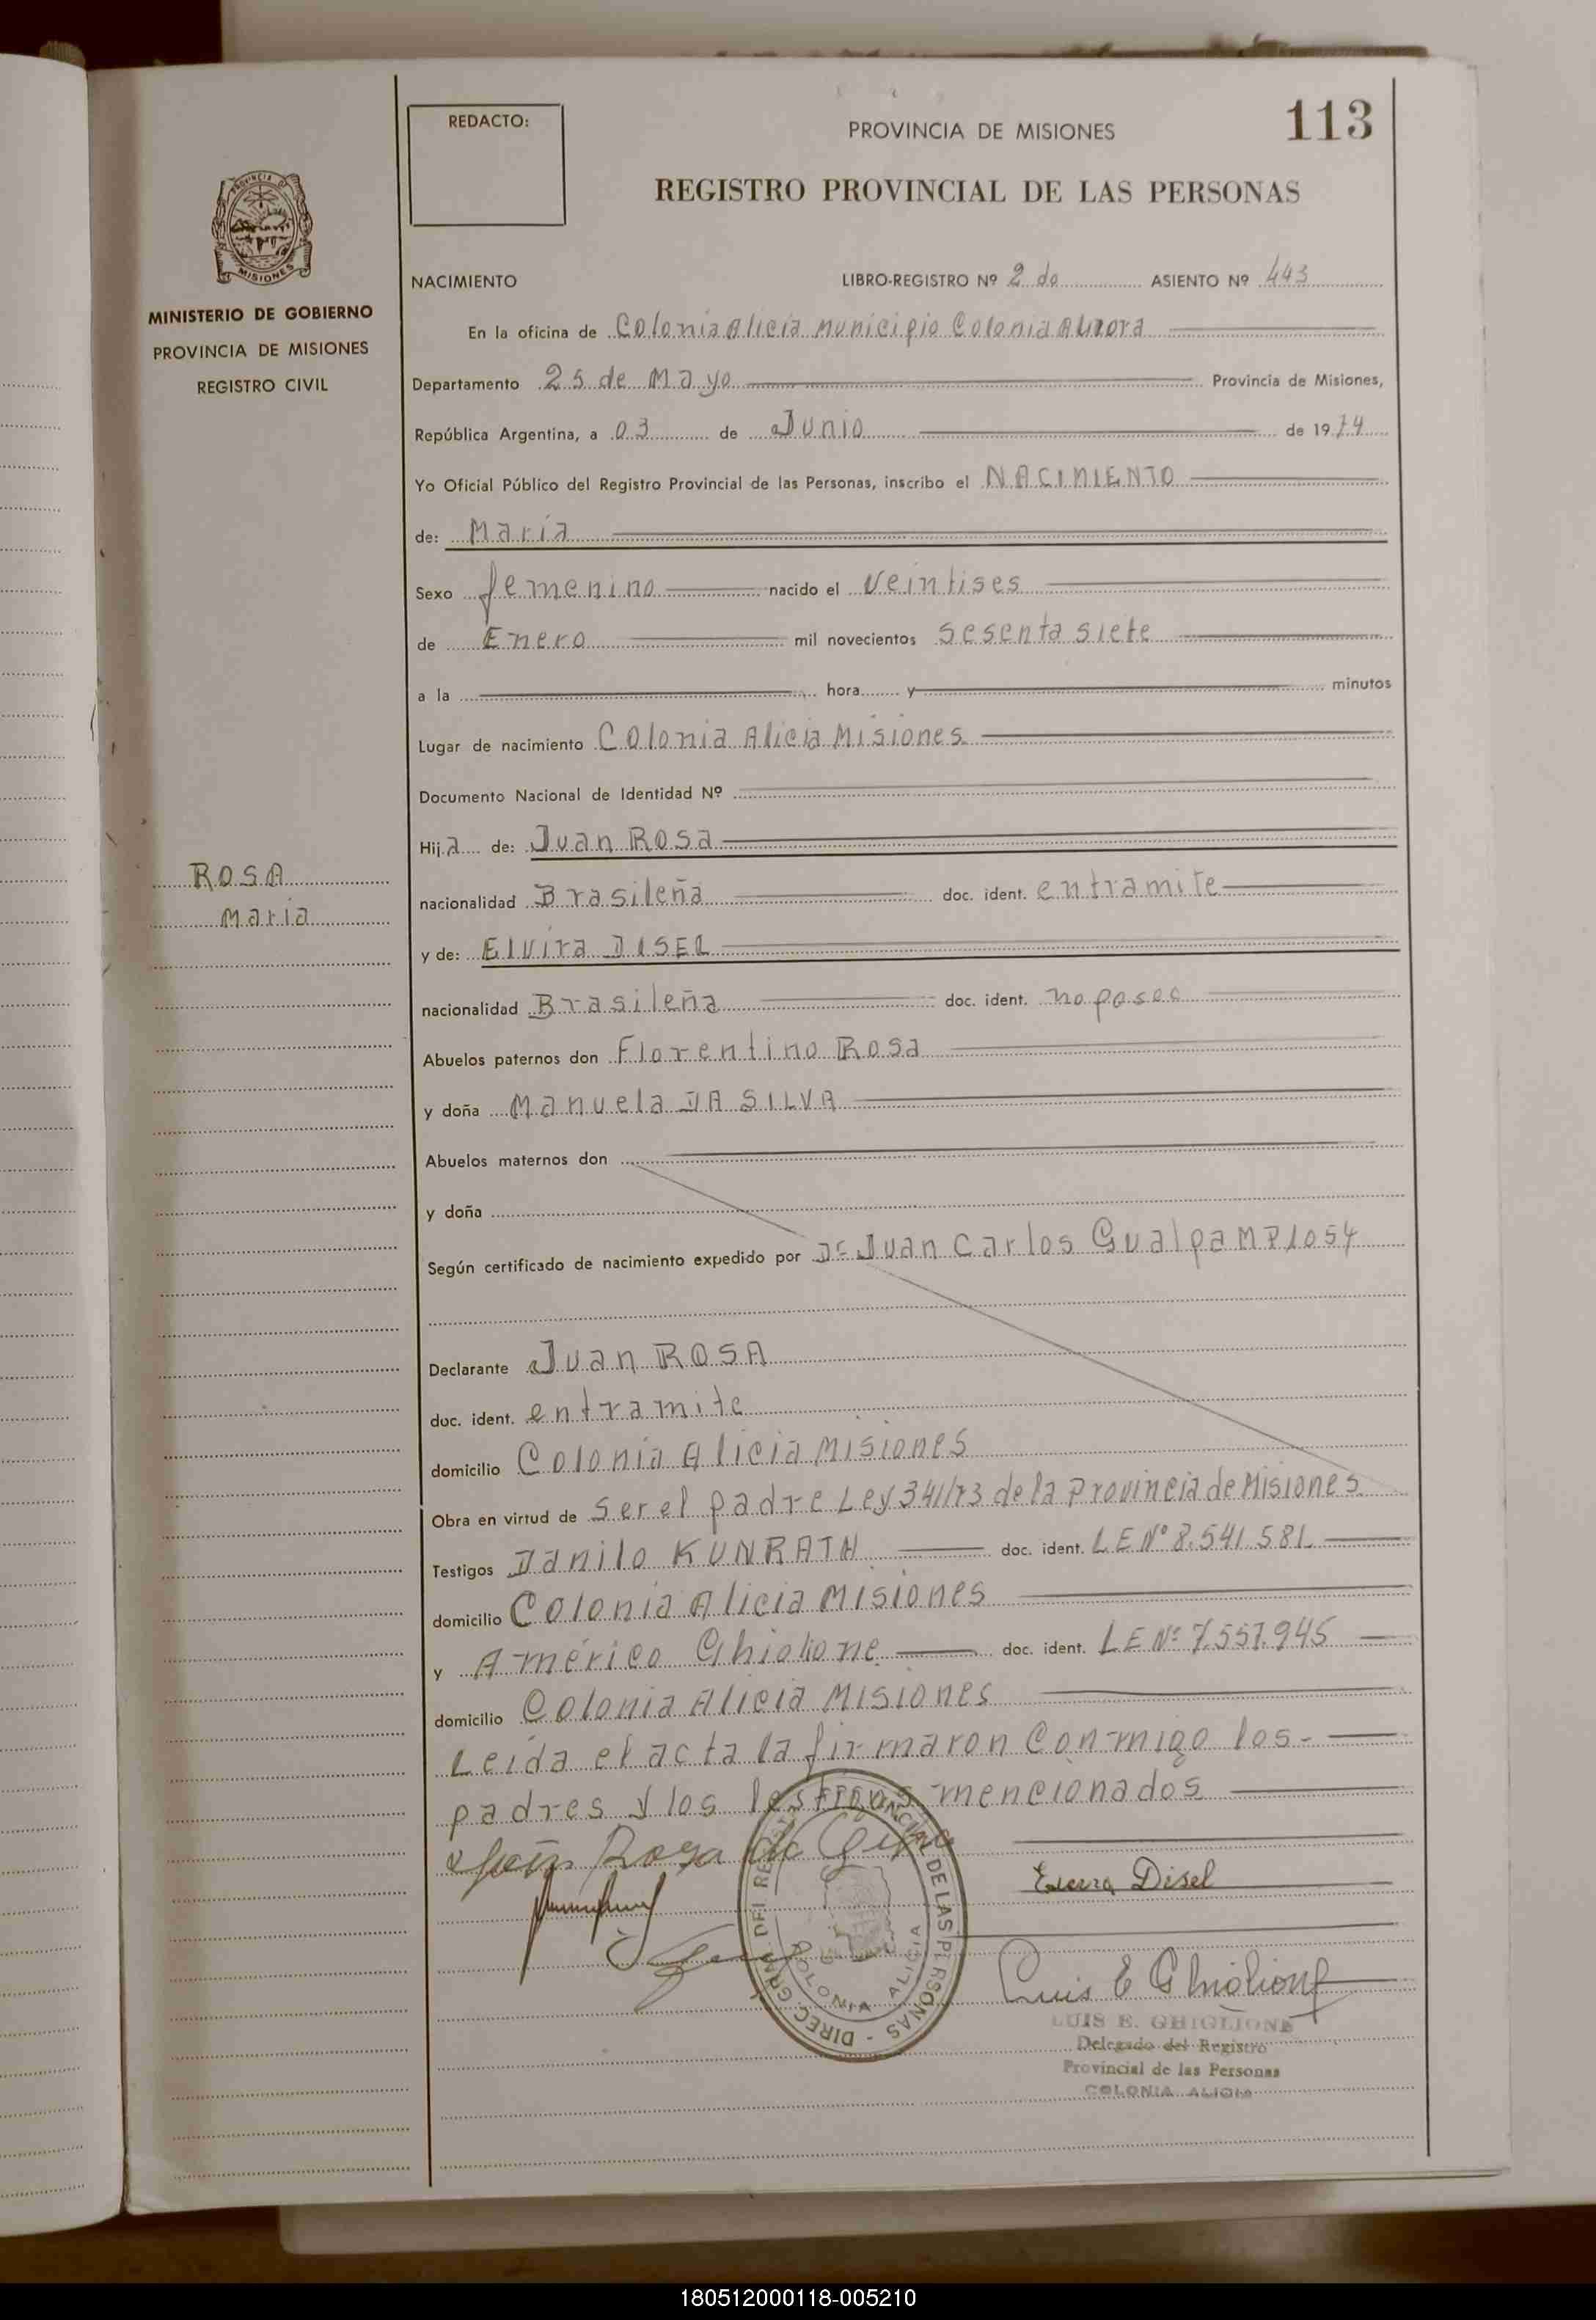 113
REDACTO:
PROVINCIA DE MISIONES
REGISTRO PROVINCIAL DE LAS PERSONAS
MISIONES
MINISTERIO DE GOBIERNO
PROVINCIA DE MISIONES
REGISTRO CIVIL
NACIMIENTO LIBRO-REGISTRO Nº 2 do ASIENTO Nº 443
En la oficina de Colonia Alicia Municipio Colonia Aurora
Departamento 25 de Mayo Provincia de Misiones,
República Argentina, a 03 de Junio de 1974
Yo Oficial Público del Registro Provincial de las Personas, inscribo el NACIMIENTO
de: Maria
Sexo femenino nacido el veintises
de Enero mil novecientos sesenta siete
a la hora y minutos
Lugar de nacimiento Colonia Alicia Misiones
Documento Nacional de Identidad Nº
Hija de: Juan Rosa
ROSA
Maria
nacionalidad Brasileña doc. ident. entramite
y de: Elvira DISEL
nacionalidad Brasileña doc. ident. no posee
Abuelos paternos don Florentino Rosa
y doña Manuela DA SILVA
Abuelos maternos don
y doña
Según certificado de nacimiento expedido por Dr Juan Carlos Gualpa MP1054
Declarante Juan ROSA
doc. ident. entramite
domicilio Colonia Alicia Misiones
Obra en virtud de ser el padre Ley 341/73 de la Provincia de Misiones
Testigos Danilo KUNRATH doc. ident. LE Nº 8.541.581
domicilio Colonia Alicia Misiones
y Américo Ghiglione doc. ident. LE Nº 7.557.945
domicilio Colonia Alicia Misiones
Leida el acta la firmaron conmigo los
padres y los testigos mencionados
Rosa da
Disel
DIREC. GRAL. DEL REGISTRO PROVINCIAL DE LAS PERSONAS
COLONIA ALICIA
Luis E Ghiglione
LUIS E. GHIGLIONE
Delegado del Registro
Provincial de las Personas
COLONIA ALICIA
180512000118-005210